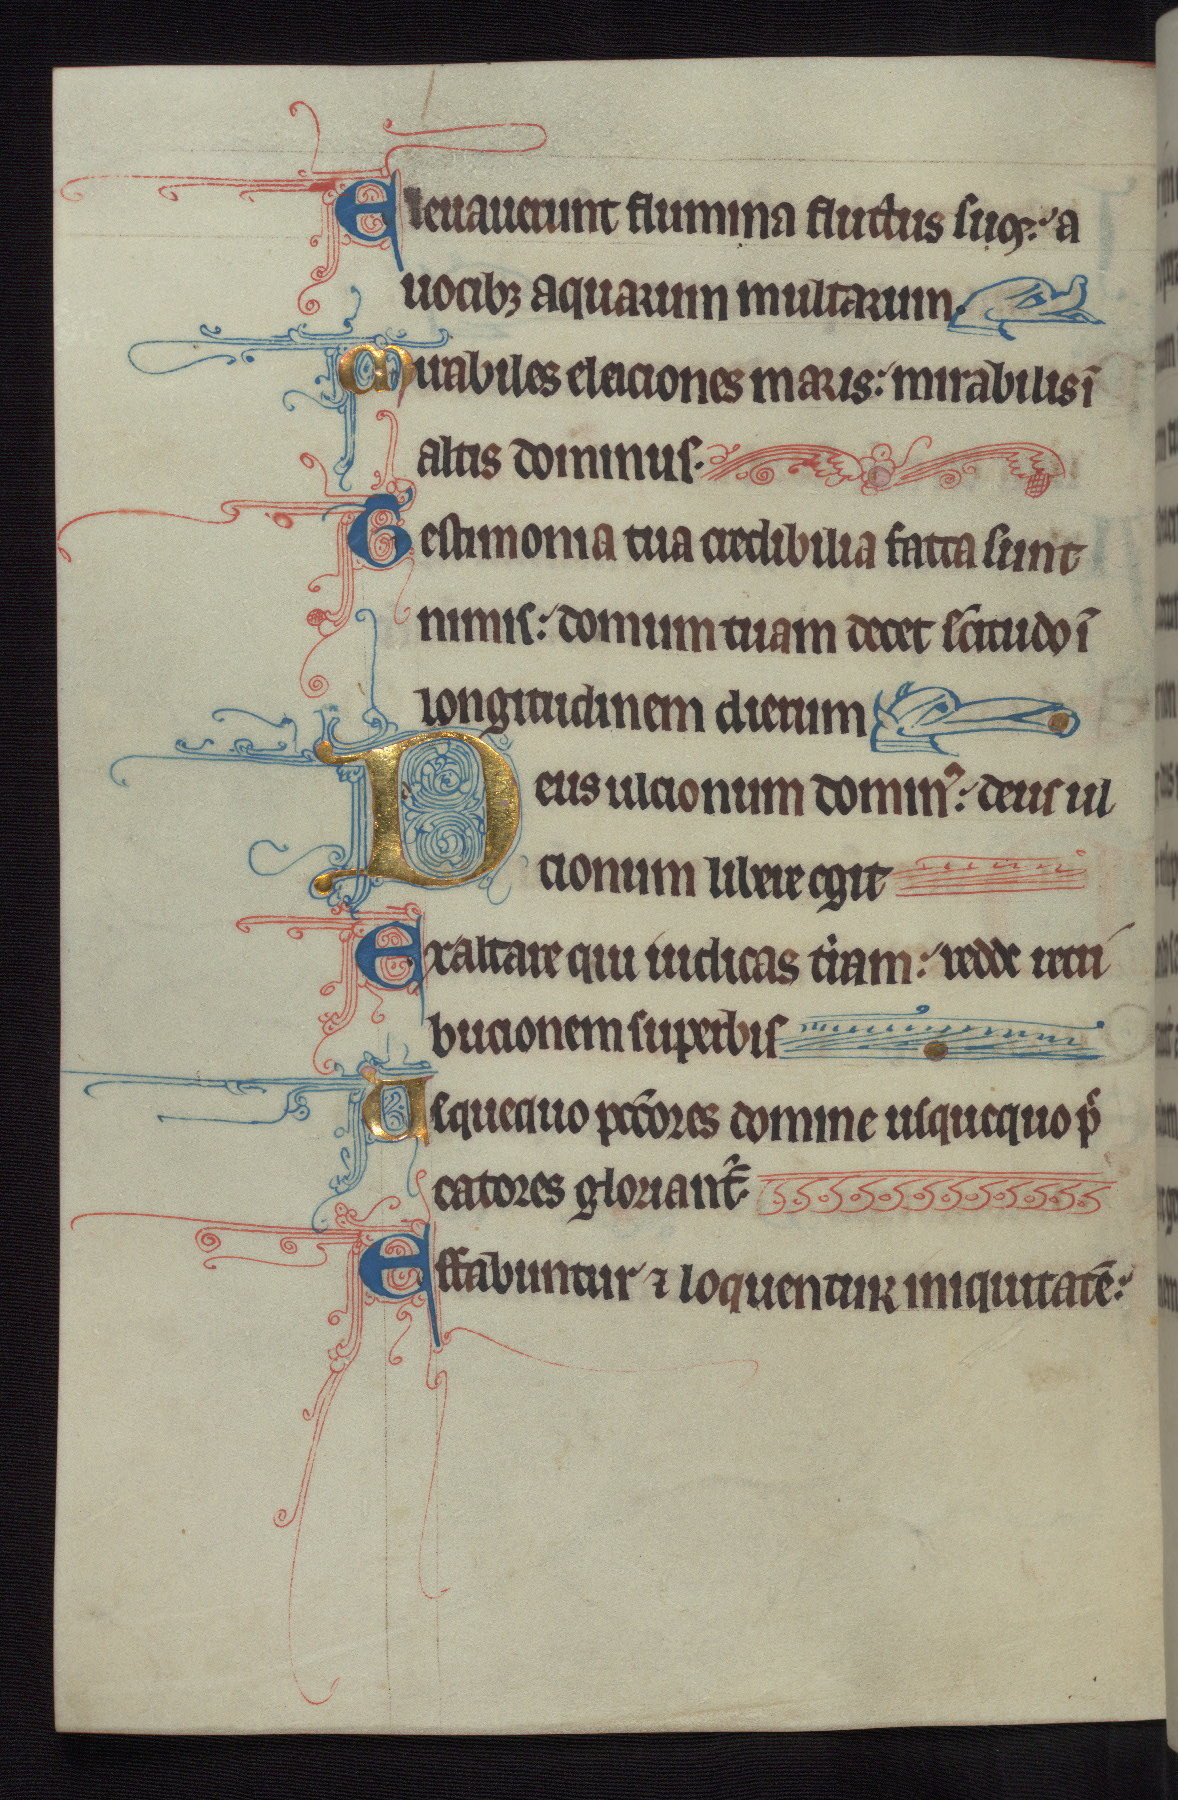 Eleuauerunt flumina fluctus suoꝝ: a
uocibꝫ aquarum multarum.
Mirabiles elaciones maris: mirabilis ī
altis dominus.
Testimonia tua credibilia facta sunt
nimis: domum tuam decet sc̄itudo ī
longitudinem dierum
Deus ulcionum domin᷒: deus ul
cionum libere egit
Exaltare qui iudicas t̄ram: redde retri
bucionem superbis
Usquequo pecc̄ores domine usquequo p̄
catores gloriant᷑.
Effabuntur ⁊ loquentur iniquitatē: